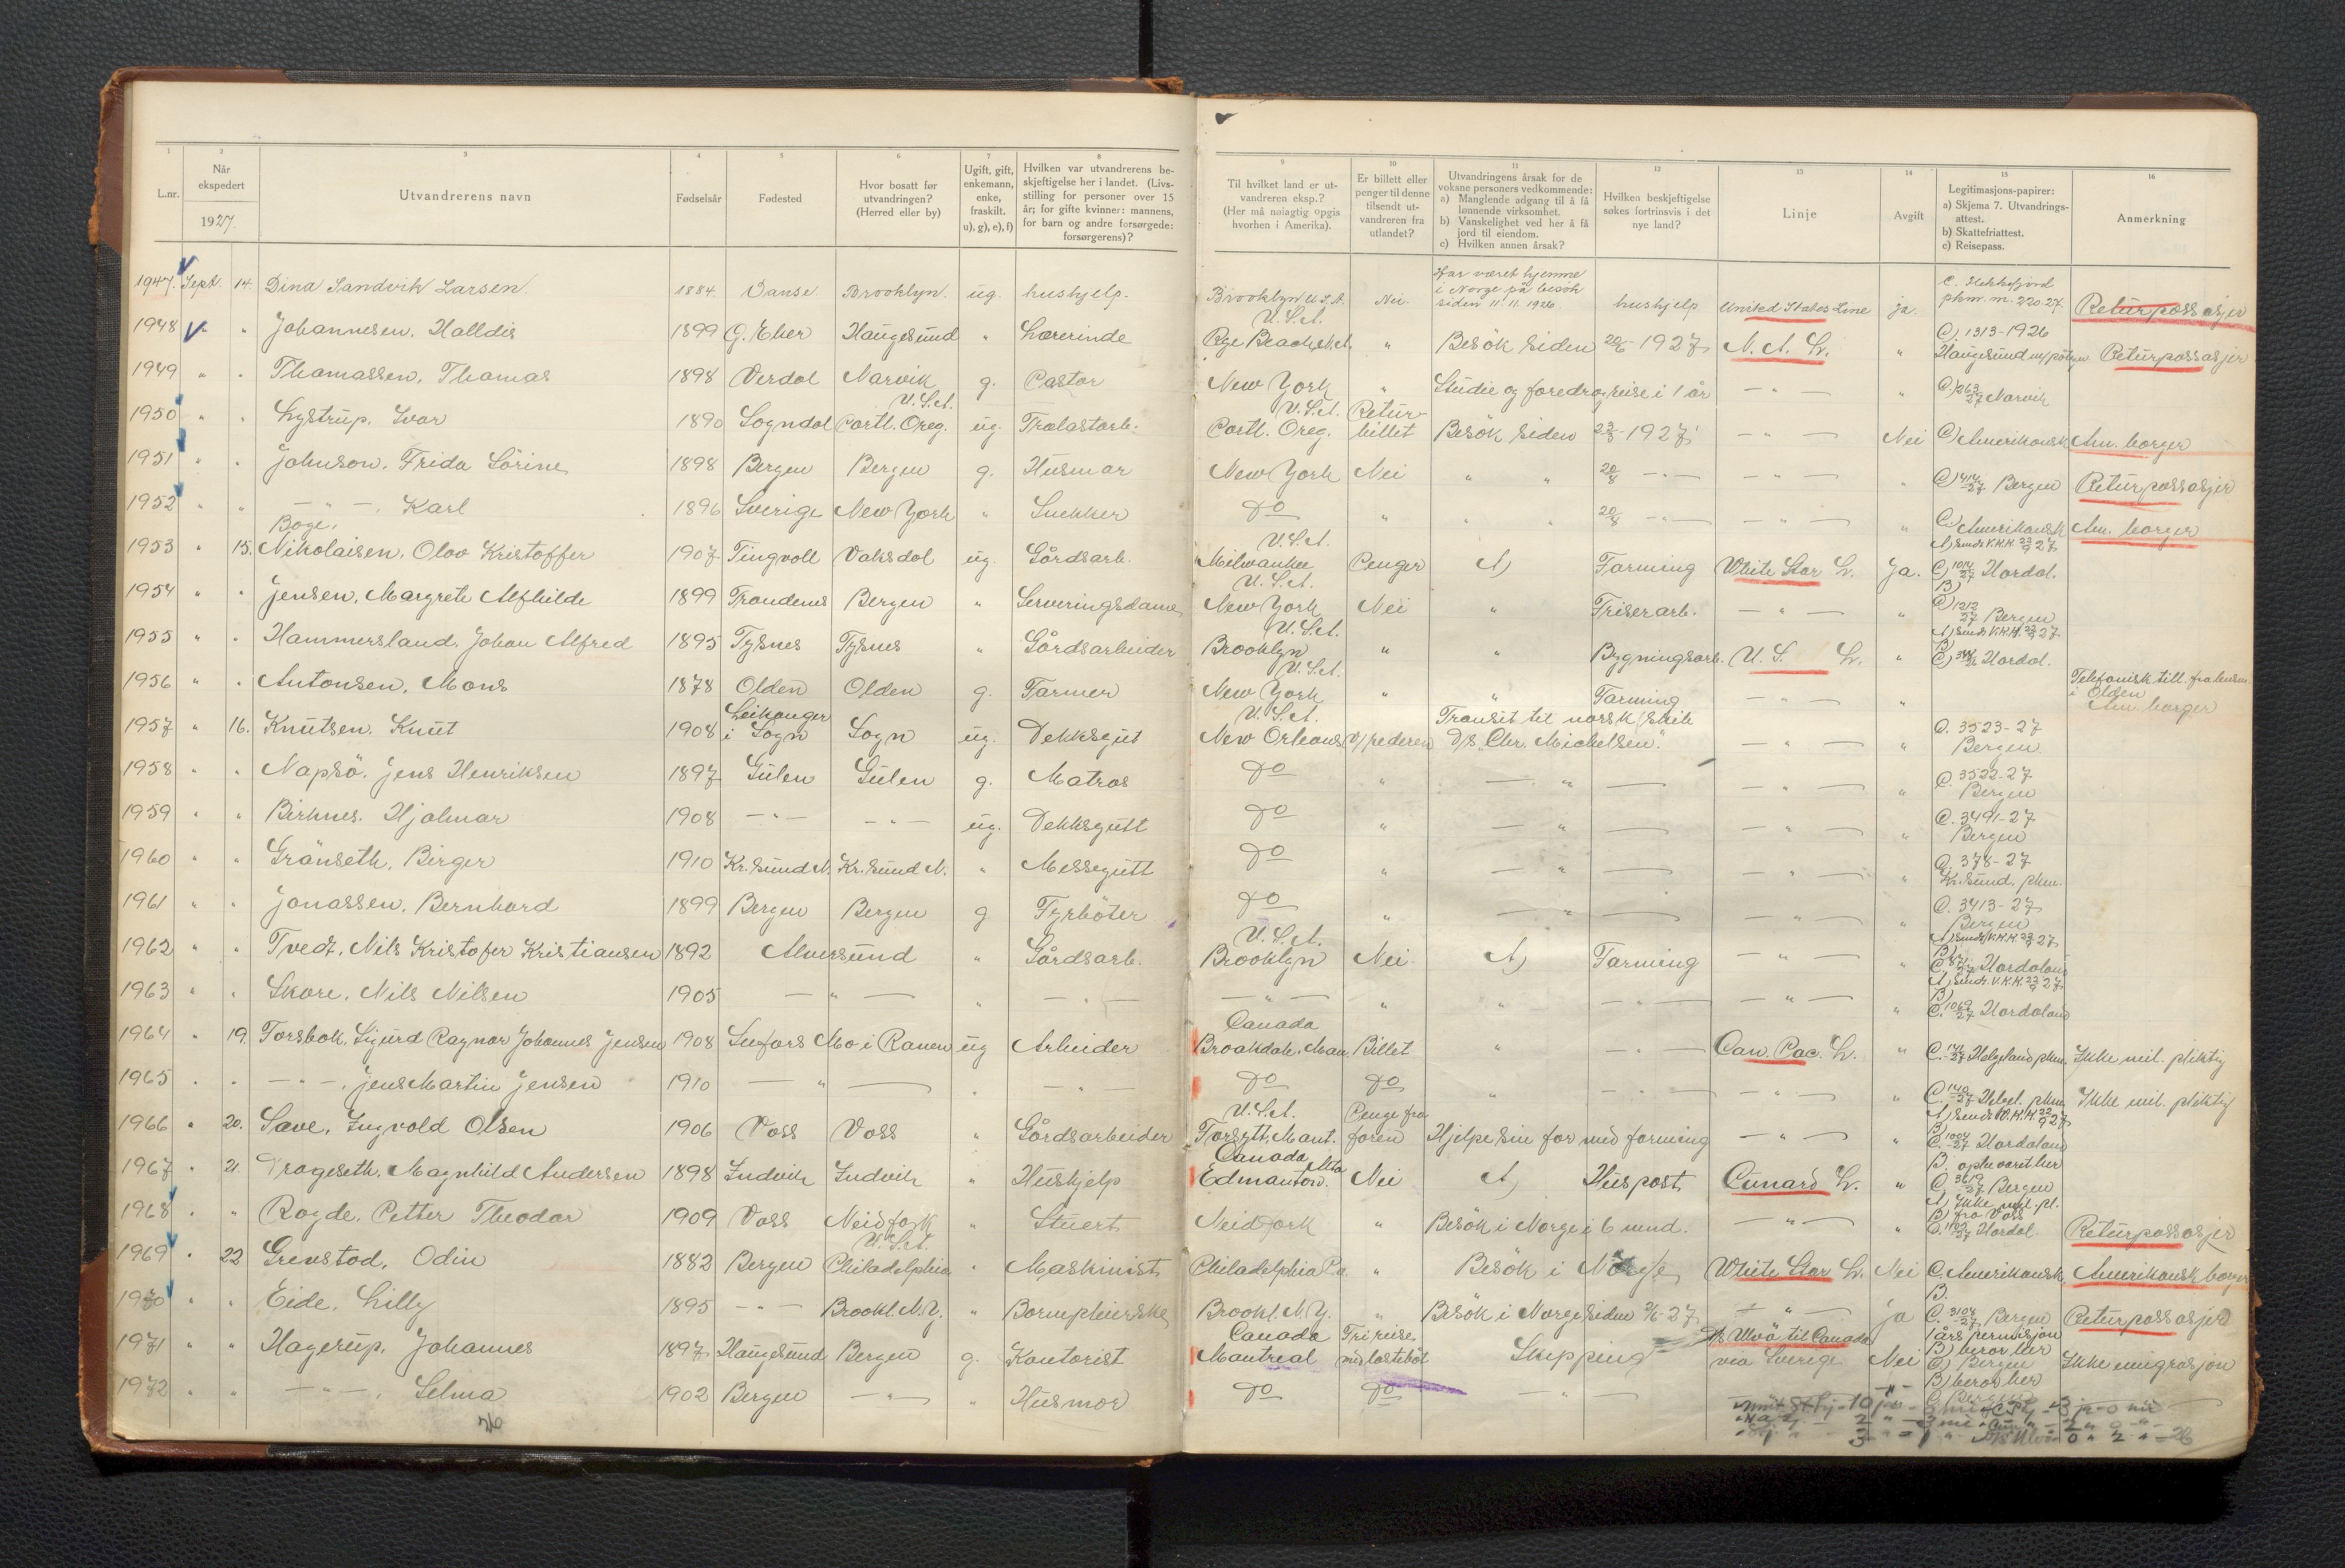 1 2 3 4 5 6 7 8
L.nr. Når ekspedert 1927. Utvandrerens navn Fødselsår Fødested Hvor bosatt før utvandringen? (Herred eller by) Ugift, gift, enkemann, enke, fraskilt. u), g), e), f) Hvilken var utvandrerens beskjeftigelse her i landet. (Livsstilling for personer over 15 år; for gifte kvinner: mannens, for barn og andre forsørgede: forsørgerens)?
9 10 11 12 13 14 15 16
Til hvilket land er utvandreren eksp.? (Her må nøiagtig opgis hvorhen i Amerika). Er billett eller penger til denne tilsendt utvandreren fra utlandet? Utvandringens årsak for de voksne personers vedkommende: a) Manglende adgang til å få lønnende virksomhet. b) Vanskelighet ved her å få jord til eiendom. c) Hvilken annen årsak? Hvilken beskjeftigelse søkes fortrinsvis i det nye land? Linje Avgift Legitimasjons-papirer: a) Skjema 7. Utvandringsattest. b) Skattefriattest. c) Reisepass. Anmerkning
1947. Sept. 14. Dina Sandvik Larsen. 1884. Vanse Brooklyn. ug. hushjelp. Brooklyn U.S.A. Nei. Har været hjemme i Norge på besök siden 11.11.1926 hushjelp United States Line ja. C. Flekkefjord pkm. m. 220.27. Returpassasjer
1948 " " Johannesen, Halldis 1899 G. Eker Haugesund " Lærerinde U.S.A. Rye Beach, N.A. " Besök siden 20/6 - 1927 N. A. L. " C) 1313-1926 Haugesund Returpassasjer
1949 " " Thomassen, Thomas 1898 Verdal Narvik g. Pastor New York " Studie og foredragreise i 1 år - " - " C) 263/27 Narvik
1950 " " Lystrup, Ivar 1890 Sogndal U.S.A. Portl. Oreg. ug. Trælastarb. U.S.A. Portl. Oreg. Returbillet Besök siden 23/3 - 1927 - " - Nei C) Amerikansk Am. borger
1951 " " Johnson, Frida Sörine 1898 Bergen Bergen g. Husmor New York Nei " " 20/8 - " - - " - " C) 414/27 Bergen Returpassasjer
1952 " " - " -, Karl 1896 Sverige New York " Snekker do " " " 20/8 - " - - " - " C) Amerikansk Am. borger
1953 " 15. Boge, Nikolaisen, Olav Kristoffer 1907 Tingvoll Vaksdal ug. Gårdsarb. U.S.A. Milwaukee Penger A) Farming White Star L. Ja. A) Sendt V.K.K. 22/9 27 C) 1014/27 Hordal.
1954 " " Jensen, Margrete Alfhilde 1899 Trondenes Bergen " Serveringsdame U.S.A. New York Nei " Friserarb. - " - " B) C) 1212/27 Bergen
1955 " " Hammersland, Johan Alfred 1895 Tysnes Tysnes " Gårdsarbeider U.S.A. Brooklyn " " Bygningsarb. U. S. L. " A) Sendt V.K.K. 22/9 27 B) C) Hordal.
1956 " " Antonsen, Mons 1878 Olden Olden g. Farmer U.S.A. New York " " Farming - " - " Telefonisk till. fra lensm. i Olden Am. borger
1957 " 16. Knutsen, Knut 1908 Leikanger i Sogn Sogn ug. Dekksgut U.S.A. New Orleans v/ rederen Transit til norsk skib D/S "Chr. Michelsen". - " - " C. 3523-27 Bergen
1958 " " Napsö, Jens Henriksen 1897 Gulen Gulen g. Matros do " - " - - " - " C. 3522-27 Bergen
1959 " " Birknes, Hjalmar 1908 - " - - " - ug. Dekksgutt do " - " - - " - " C. 3491-27 Bergen
1960 " " Grånseth, Birger 1910 Kr. sund N. Kr. sund N. " Messegutt do " - " - - " - " C. 378-27 Kr. sund. pkm.
1961 " " Jonassen, Bernhard 1899 Bergen Bergen g. Fyrböter do " - " - - " - " C. 3413-27 Bergen
1962 " " Tvedt, Nils Kristofer Kristiansen 1892 Alversund " Gårdsarb. U.S.A. Brooklyn Nei A) Farming - " - " A) Sendt V.K.K. 22/9 27 B) C. Hordaland
1963 " " Skare, Nils Nilsen 1905 - " - " - " - - " - " " - " - - " - " A) Sendt V.K.K. 22/9 27 B) C. 1069/27 Hordaland
1964 " 19. Forsbak, Sigurd Ragnar Johannes Jensen 1908 Mo i Ranen ug Arbeider Canada Broakdale, Man. Billet " - " - Can. Pac. L. " C. 141/27 Helgeland pkm. Ikke mil. pliktig
1965 " " - " -, Jens Martin Jensen 1910 - " - " - " - do do " - " - - " - " C. 140/27 Helgel. pkm. Ikke mil. pliktig
1966 " 20. Save, Ingvald Olsen 1906 Voss Voss " Gårdsarbeider U.S.A. Forsytt, Mont. Penge fra faren Hjelpe sin far med farming - " - " A) Sendt V.K.K. 22/9 27 B) C. 1004/27 Hordaland
1967 " 21. Drageseth, Magnhild Andersen 1898 Indvik Indvik " Hushjelp Canada Edmanton. Alta Nei A) Huspost Cunard L. " B. C. 3619/27 Bergen
1968 " " Rogde, Petter Theodor 1909 Voss Neidfork " Stuert Neidfork " Besök i Norge i 6 mnd. - " - " A) Ikke mil. pl. B) fra Voss C. 1102/27 Hordal. Returpassasjer
1969 " 22 Grenstad, Odin 1882 Bergen U.S.A. Philadelphia " Maskinist Philadelphia Pa. " Besök i Norge White Star L. Nei C. Amerikansk Amerikansk borger
1970 " " Eide, Lilly 1895 - " - Brookl. N.Y. " Barnepleierske Brookl. N.Y. " Besök i Norge siden 2/6 - 27 - " - ja B. C. 3107/27 Bergen Returpassasjer
1971 " " Hagerup, Johannes 1897 Haugesund Bergen g. Kontorist Canada Montreal Fri reise m/ lastebåt Skipping D/S Ulvå til Canada via Sverige Nei 1 års permisjon B) C) Bergen Ikke emigrasjon
1972 " " - " -, Selma 1902 Bergen - " - " Husmor do do - " - - " - B) C. Bergen - " -
26